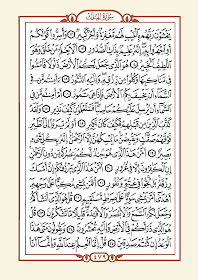 سورة الملك
يخشون ربهم بالغيب لهم مغفرة وأجر كبير وأسروا قولكم
أو اجهروا به إنه عليم بذات الصدور ألا يعلم من خلق وهو
اللطيف الخبير هو الذي جعل لكم الأرض ذلولا فامشوا
في مناكبها وكلوا من رزقه وإليه النشور ءأمنتم من في
السماء أن يخسف بكم الأرض فإذا هي تمور أم أمنتم من في
السماء أن يرسل عليكم حاصبا فستعلمون كيف نذير ولقد
كذب الذين من قبلهم فكيف كان نكير أولم يروا إلى الطير
فوقهم صافات ويقبضن ما يمسكهن إلا الرحمن إنه بكل شيء
بصير أمن هذا الذي هو جند لكم ينصركم من دون الرحمن
إن الكافرون إلا في غرور أمن هذا الذي يرزقكم إن أمسك
رزقه بل لجوا في عتو ونفور أفمن يمشي مكبا على وجهه
أهدى أمن يمشي سويا على صراط مستقيم قل هو الذي أنشأكم
وجعل لكم السمع والأبصار والأفئدة قليلا ما تشكرون قل
هو الذي ذرأكم في الأرض وإليه تحشرون ويقولون متى هذا
الوعد إن كنتم صادقين قل إنما العلم عند الله وإنما أنا
٤٧٩